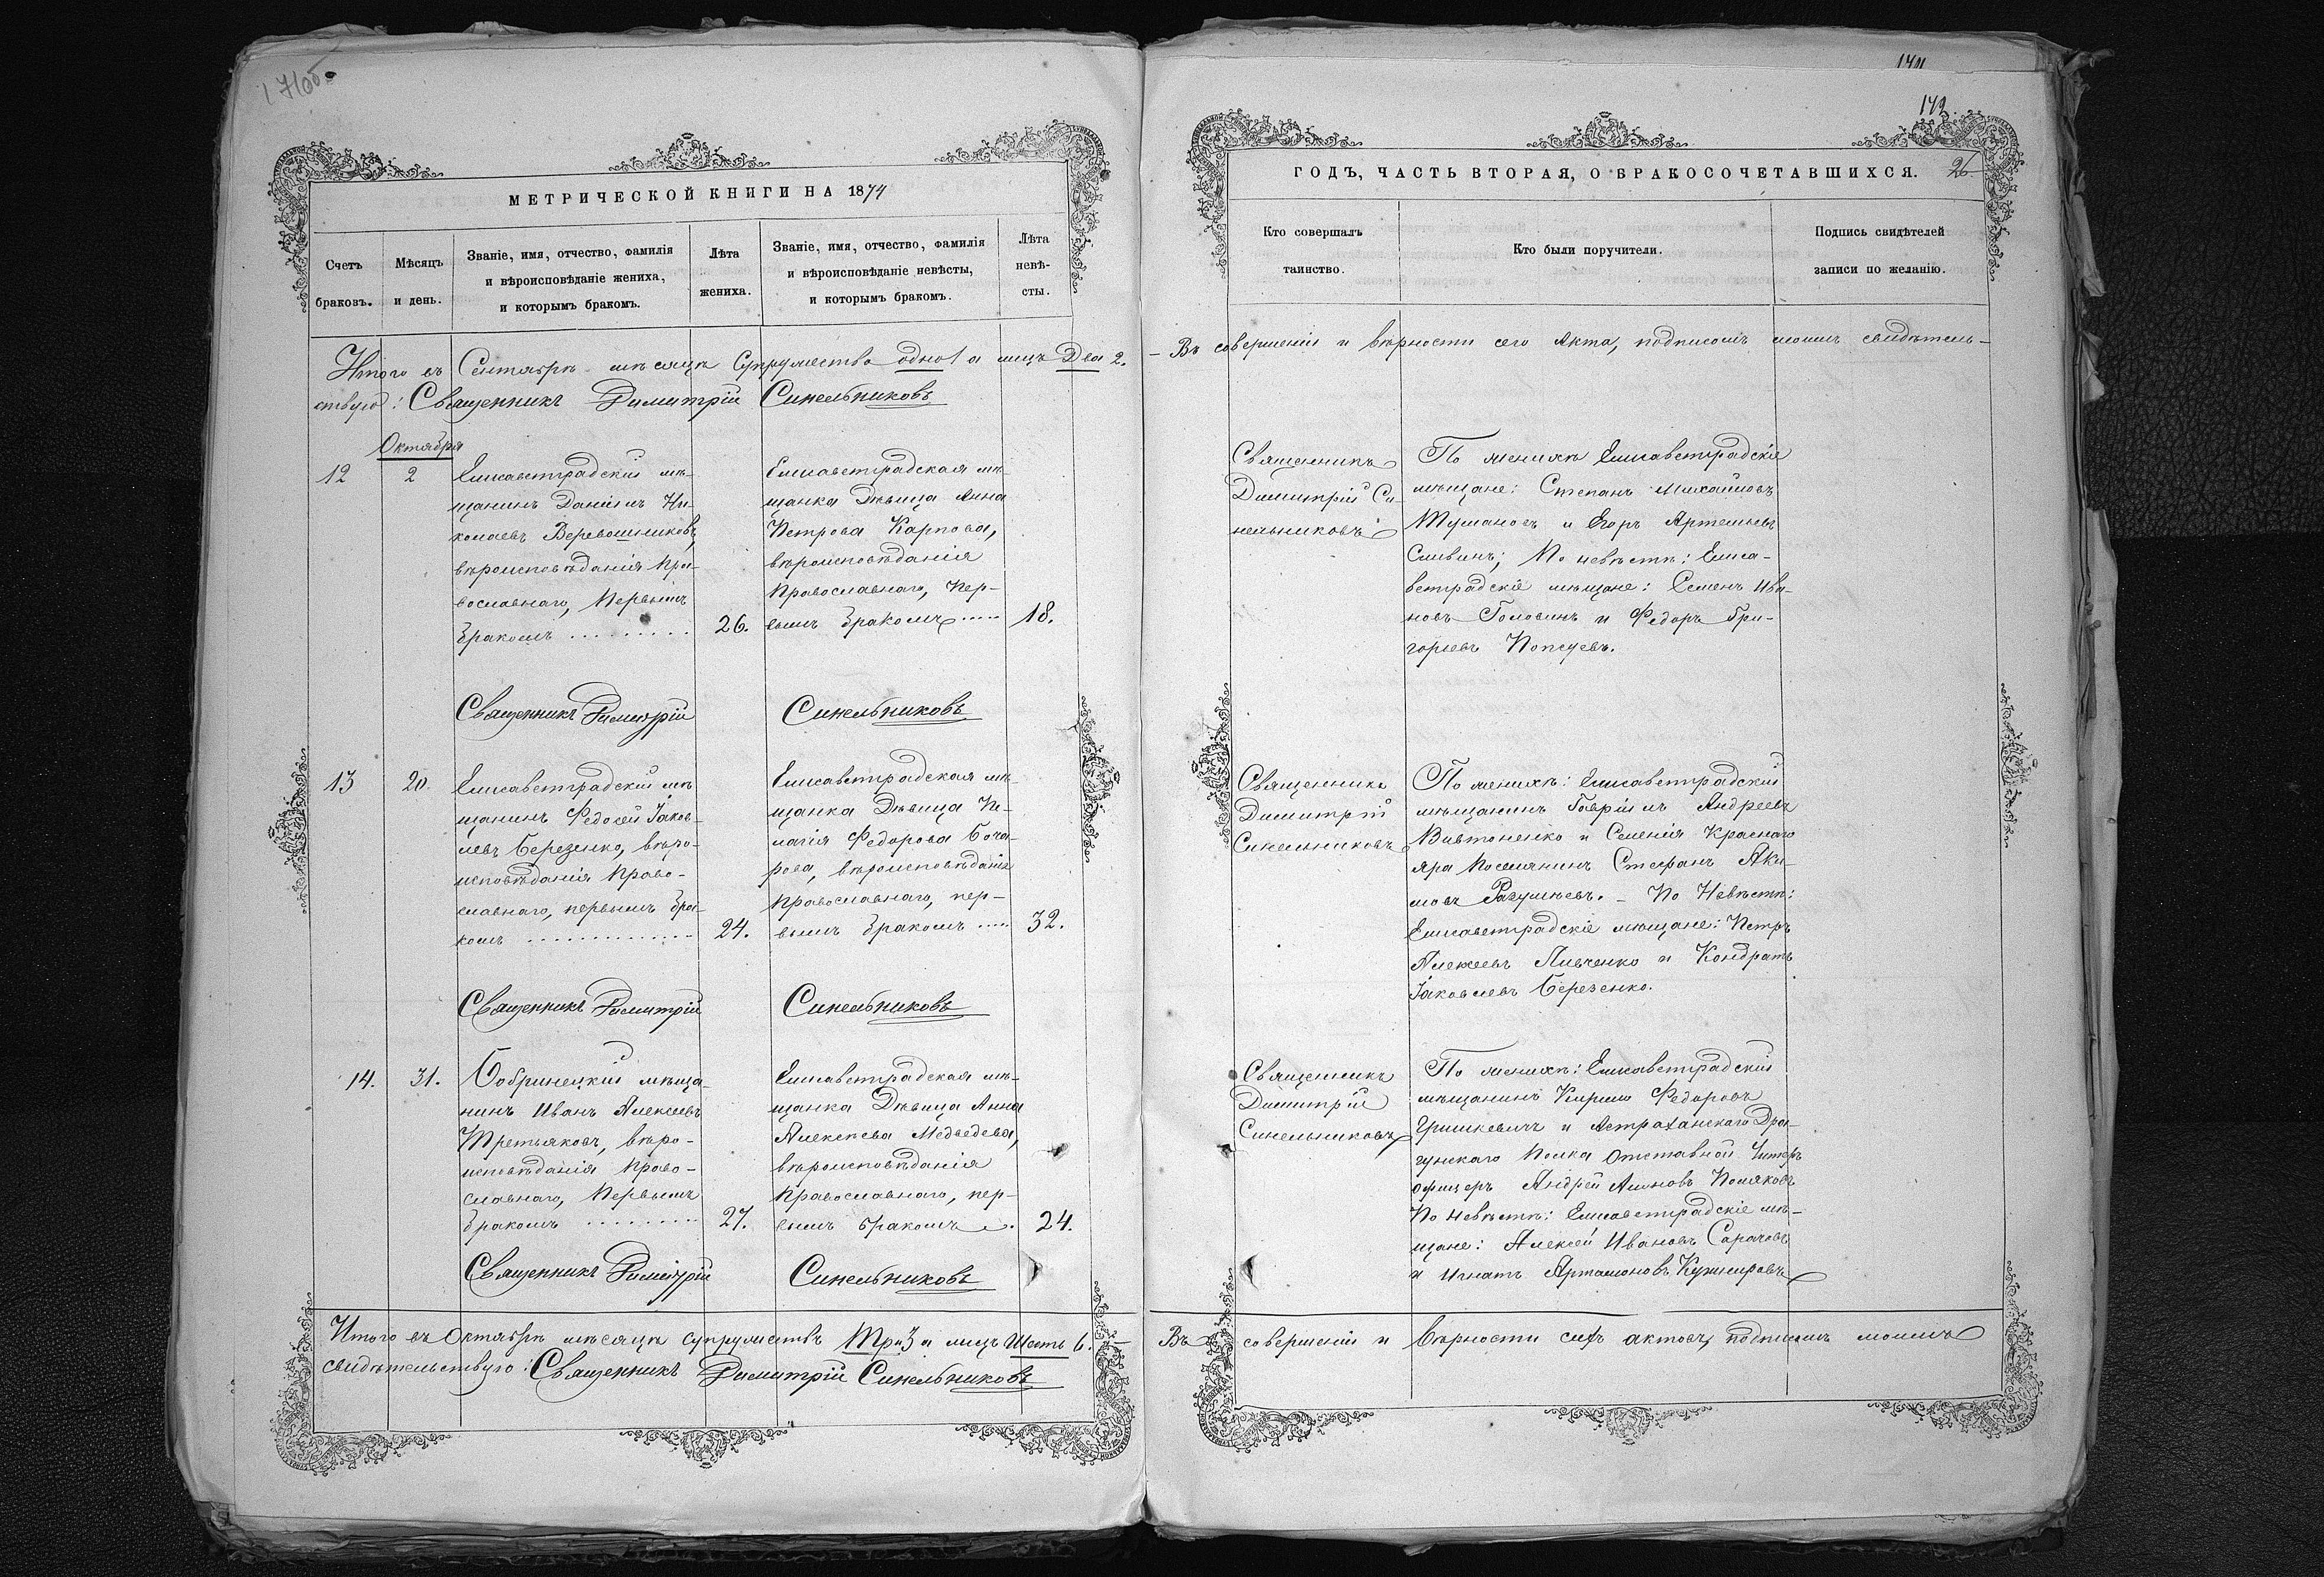 171об
МЕТРИЧЕСКОЙ КНИГИ НА 1874
Счетъ
браковъ.
Мѣсяцъ
и день.
Званіе, имя, отчество, фамилія
и вѣроисповѣданіе жениха,
и которымъ бракомъ.
Лѣта
жениха.
Званіе, имя, отчество, фамилія
и вѣроисповѣданіе невѣсты,
и которымъ бракомъ.
Лѣта
невѣ-
сты.
Итого въ Сентябрѣ мѣсяцѣ супружество одно 1 а лицъ Два 2.
ствую: Священникъ Димитрій Синельниковъ
Октября
12
2
Елисаветградскій мѣ-
щанинъ Даніилъ Ни-
колаевъ Веревошниковъ,
вѣроисповѣданія Пра-
вославнаго, Первымъ
бракомъ
26.
Елисаветградская мѣ-
щанка Дѣвица Анна
Петрова Карпова,
вѣроисповѣданія
Православнаго, Пер-
вымъ бракомъ
18.
Священникъ Димитрій
Синельниковъ
13
20
Елисаветградскій мѣ-
щанинъ Федосій Іаков-
левъ Березенко, вѣро-
исповѣданія Право-
славнаго, первымъ бра-
комъ
24.
Елисаветградская мѣ-
щанка Дѣвица Пе-
лагія Федорова Боча-
рова, вѣроисповѣданія
Православнаго, пер-
вымъ бракомъ
32.
Священникъ Димитрій
Синельниковъ
14.
31.
Бобринецкій мѣща-
нинъ Иванъ Алексѣевъ
Третьяковъ, вѣро-
исповѣданія Право-
славнаго, Первымъ
бракомъ
27.
Елисаветградская мѣ-
щанка Дѣвица Анна
Алексѣева Медведева,
вѣроисповѣданія
Православнаго, пер-
вымъ бракомъ
24.
Священникъ Димитрій
Синельниковъ
Итого въ Октябрѣ мѣсяцѣ супружествъ Три 3 а лицъ Шесть 6.
свидѣтельствую: Священникъ Димитрій Синельниковъ
172
26
ГОДЪ, ЧАСТЬ ВТОРАЯ, О БРАКОСОЧЕТАВШИХСЯ.
Кто совершалъ
таинство.
Кто были поручители.
Подпись свидѣтелей
записи по желанію.
- Въ совершеніи и вѣрности сего Акта, подписомъ моимъ свидѣтель-
Священникъ
Димитрій Си
нельниковъ
По женихѣ Елисаветградскіе
мѣщане: Степанъ Михайловъ
Тумановъ и Егоръ Артемьевъ
Сливинъ; По невѣстѣ: Елиса-
ветградскіе мѣщане: Семенъ Ива-
новъ Головинъ и Федоръ Гри-
горьевъ
Священникъ
Димитрій
Синельниковъ
По женихѣ: Елисаветградскій
мѣщанинъ Гавріилъ Андреевъ
Вивтоненко и Селенія Краснаго
яра Поселянинъ Стефанъ Аки-
мовъ Разумѣевъ. - По Невѣстѣ:
Елисаветградскіе мѣщане: Петръ
Алексѣевъ Ливченко и Кондратъ
Іаковлевъ Березенко.
Священникъ
Димитрій
Синельниковъ
По женихѣ: Елисаветградскій
мѣщанинъ Кирило Федоровъ
Гришкевичъ и Астраханскаго Дра-
гунскаго Полка Отставной Унтеръ
офицеръ Андрей Поляковъ
По невѣстѣ: Елисаветградскіе мѣ-
щане: Алексѣй Ивановъ Сарачовъ
и Игнатъ Артамоновъ Кушнировъ
Въ совершеніи и вѣрности сихъ актовъ, подписомъ моимъ